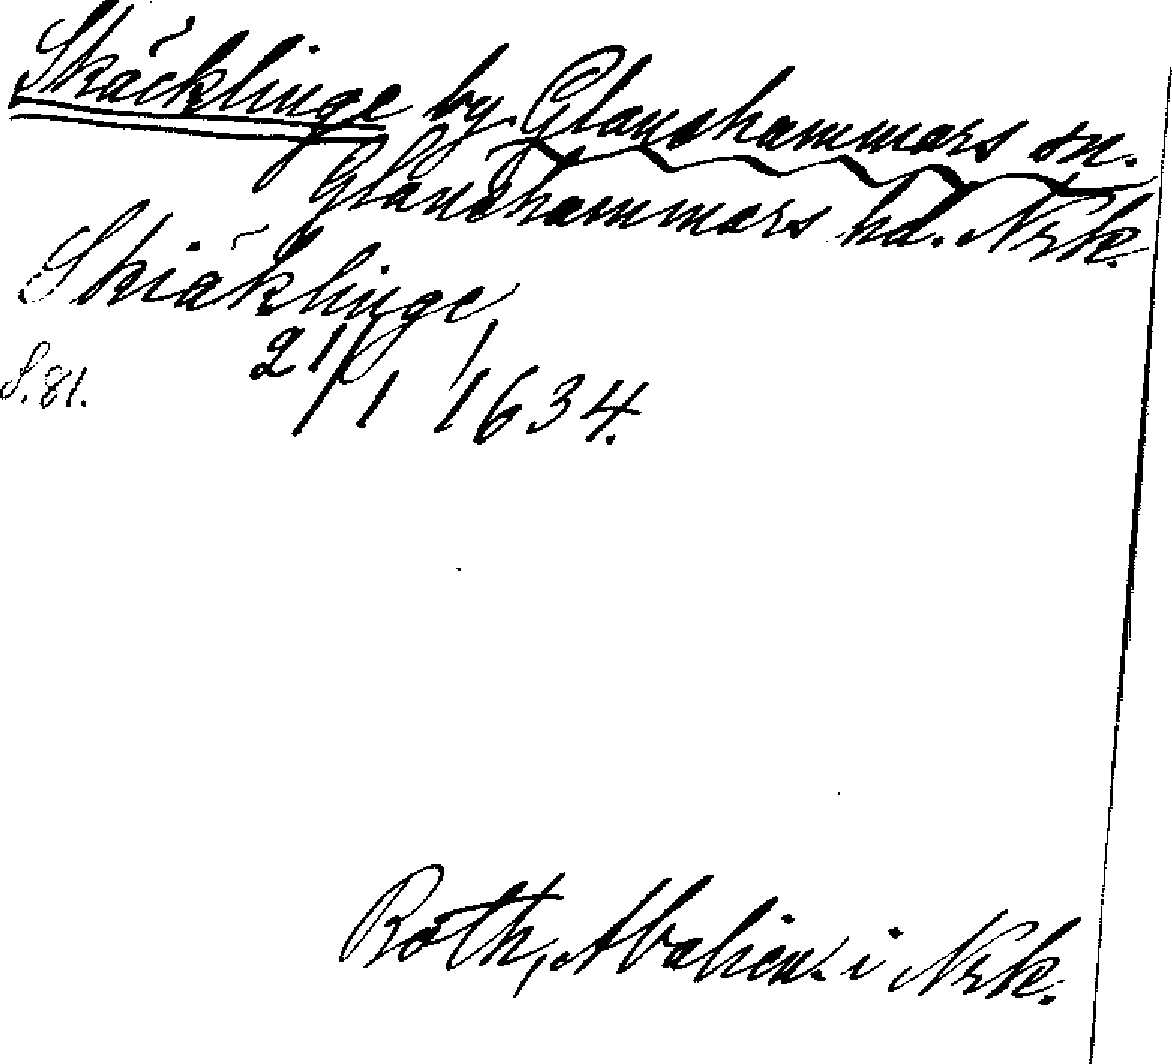 Skäcklinge by. Glanshammars sn.
Glanshammars hd. Nrk.
Skiäklinge
21/1 1634.
S. 81.
Roth, Abalien. i Nrk.